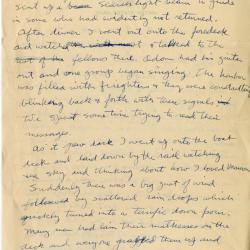 sent up a searchlight beam to guide
in some who had evidently not returned.
After dinner I went out onto the foredeck
and watched & talked to the
fellows there. Odom had his guitar
out and one group began singing. The harbor
was filled with freighters & they were constantly
blinking back & forth with their signals
We spent some time trying to read their
messages.
As it grew dark I went up onto the boat
deck and laid down by the rail watching
the sky and thinking about how I loved
Suddenly there was a big gust of wind
followed by scattered rain drops which
quickly turned into a terrific down pour.
Many men had lain their mattresses on the
deck and everyone grabbed them up and